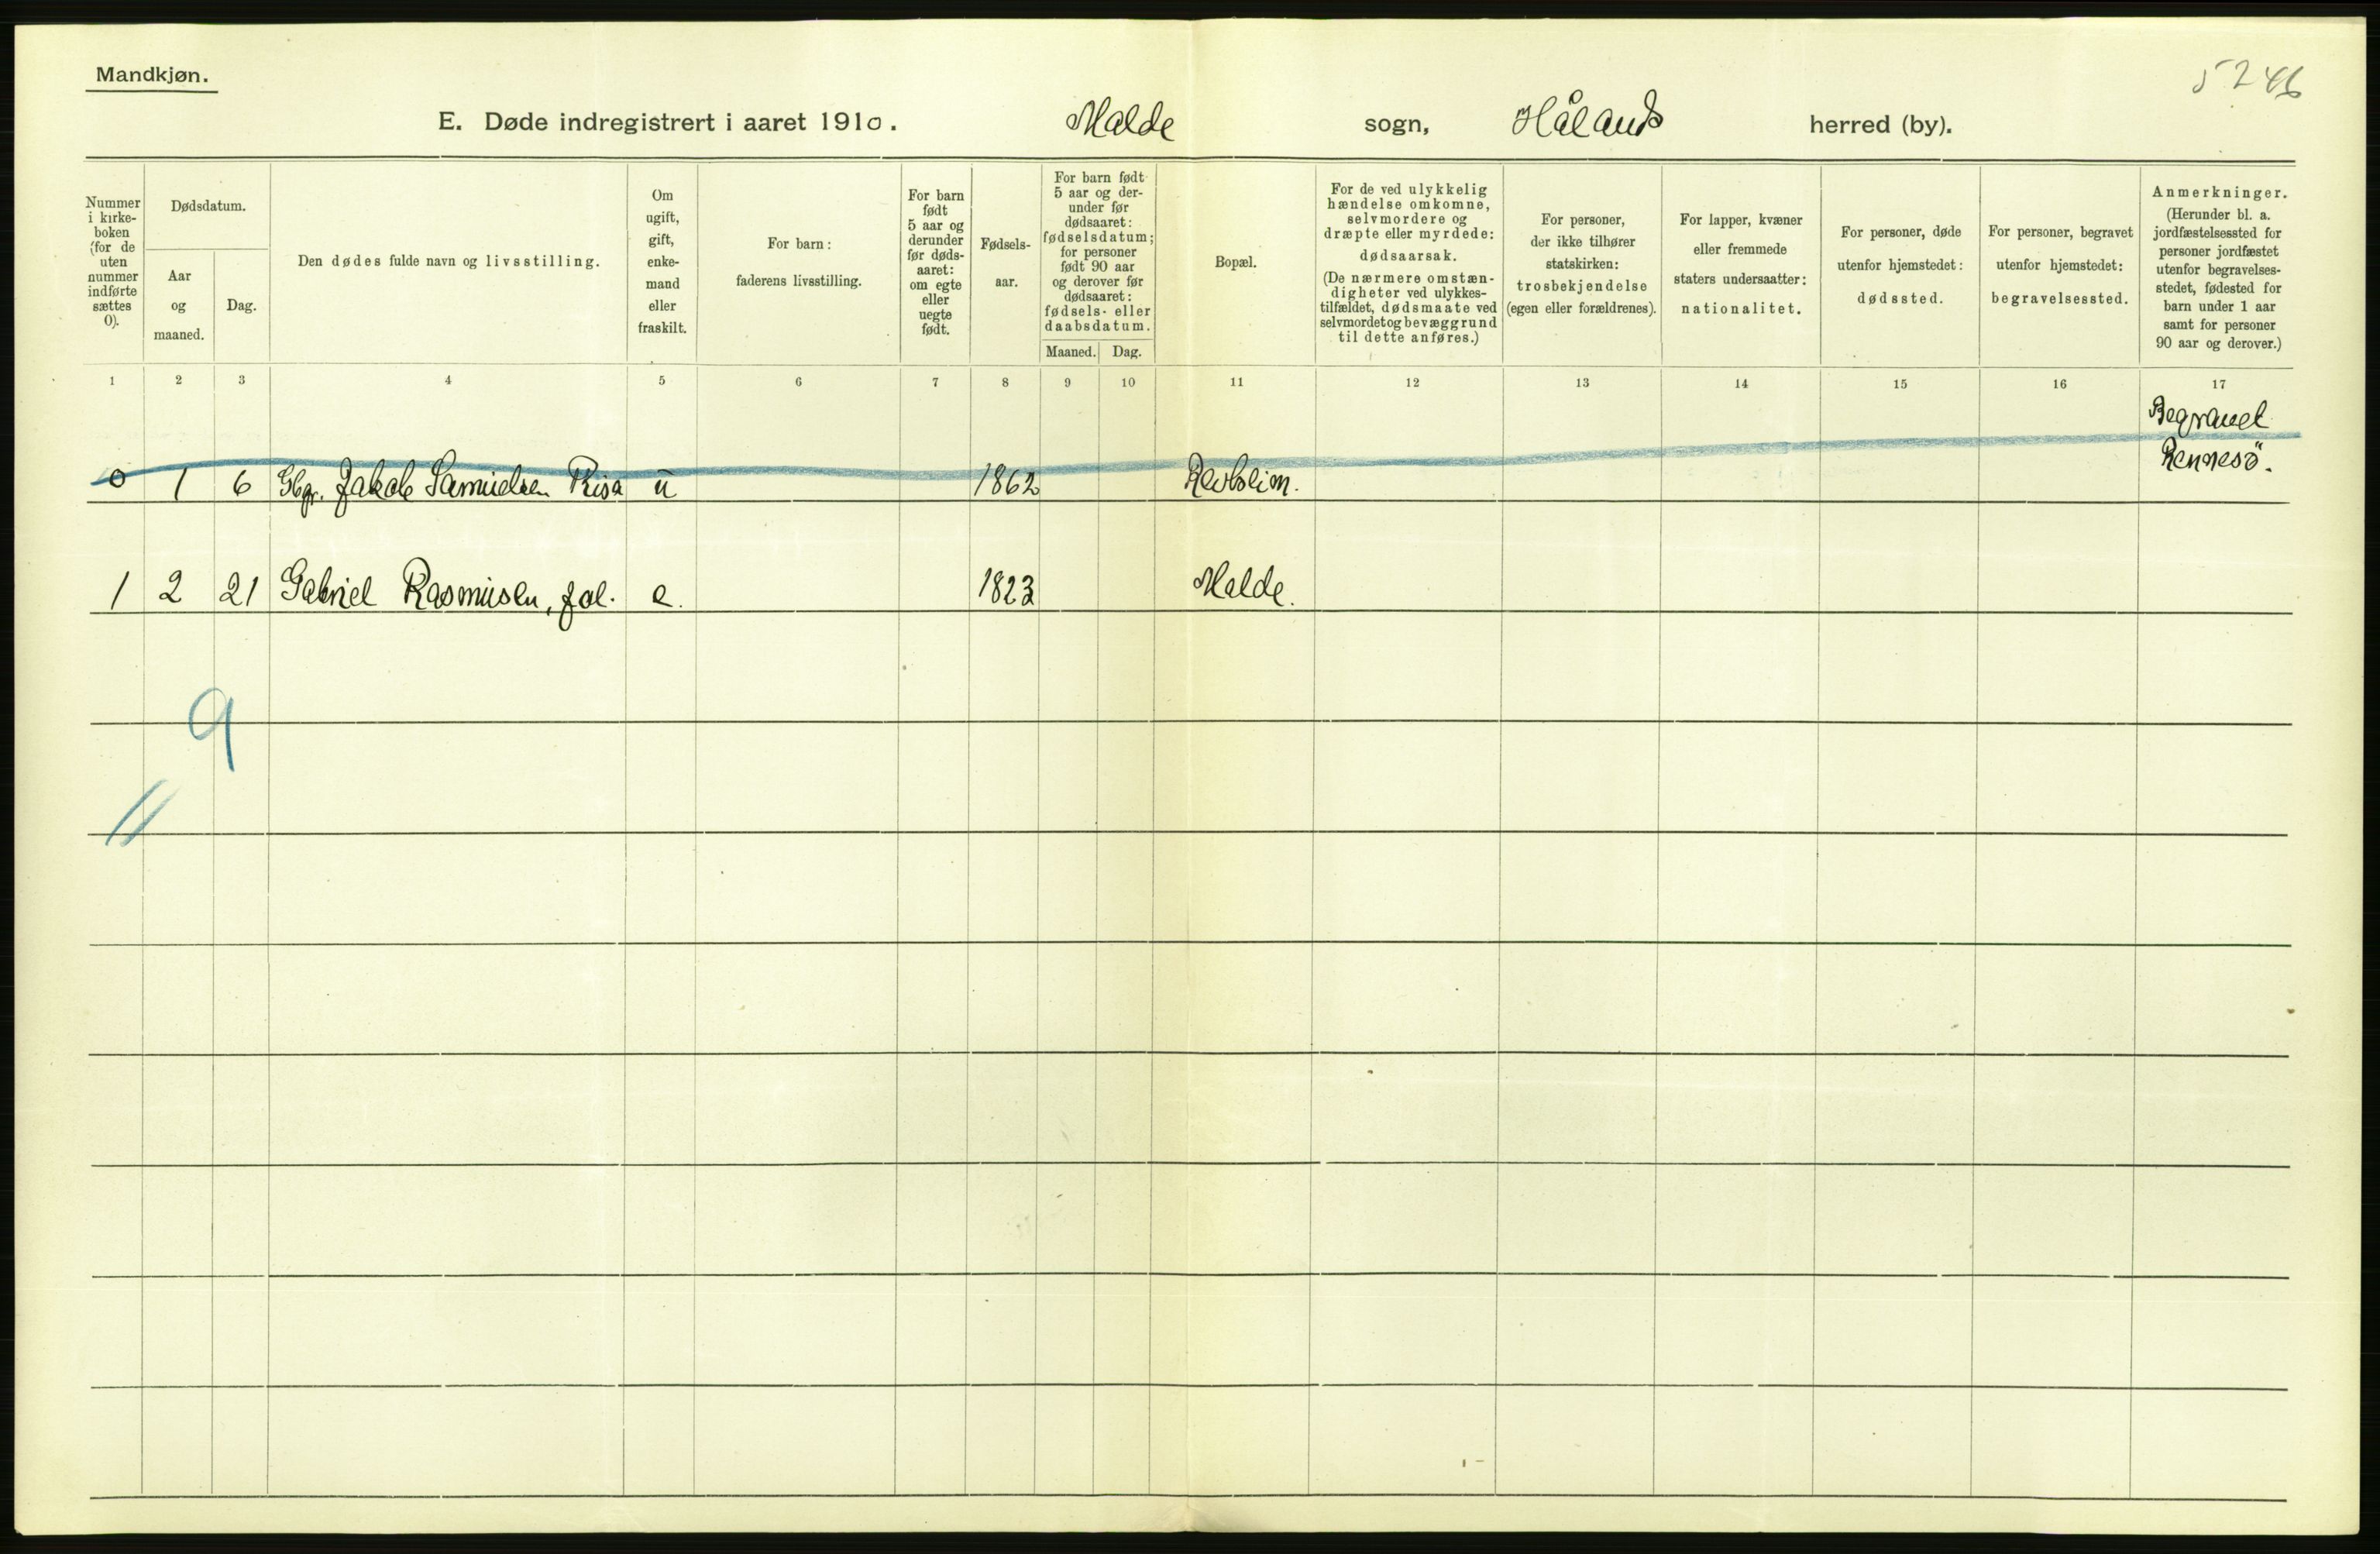 Mandkjøn.
5246
E. Døde indregistrert i aaret 1910. Malde sogn, Hålands herred (by).
Nummer i kirke-boken (for de uten nummer indførte sættes 0).
Dødsdatum.
Aar og maaned.
Dag.
Den dødes fulde navn og livsstilling.
Om ugift, gift, enke-mand eller fraskilt.
For barn: faderens livsstilling.
For barn født 5 aar og derunder før døds-aaret: om egte eller uegte født.
Fødsels-aar.
For barn født 5 aar og der-under før dødsaaret: fødselsdatum; for personer født 90 aar og derover før dødsaaret: fødsels- eller daabsdatum.
Maaned.
Dag.
Bopæl.
For de ved ulykkelig hændelse omkomne, selvmordere og dræpte eller myrdede: dødsaarsak. (De nærmere omstæn-digheter ved ulykkes-tilfældet, dødsmaate ved selvmord et og bevæggrund til dette anføres.)
For personer, der ikke tilhører statskirken: trosbekjendelse (egen eller forældrenes).
For lapper, kvæner eller fremmede staters undersaatter: nationalitet.
For personer, døde utenfor hjemstedet: dødssted.
For personer, begravet utenfor hjemstedet: begravelsessted.
Anmerkninger. (Herunder bl. a. jordfæstelsessted for personer jordfæstet utenfor begravelses-stedet, fødested for barn under 1 aar samt for personer 90 aar og derover.)
1 2 3 4 5 6 7 8 9 10 11 12 13 14 15 16 17
0 1 6 Gbgr. Jakob Samuelsen Risa u 1862 Revheim. Begravet Rennesö.
1 2 21 Gabriel Rasmusen, fol. e. 1823 Malde.
9